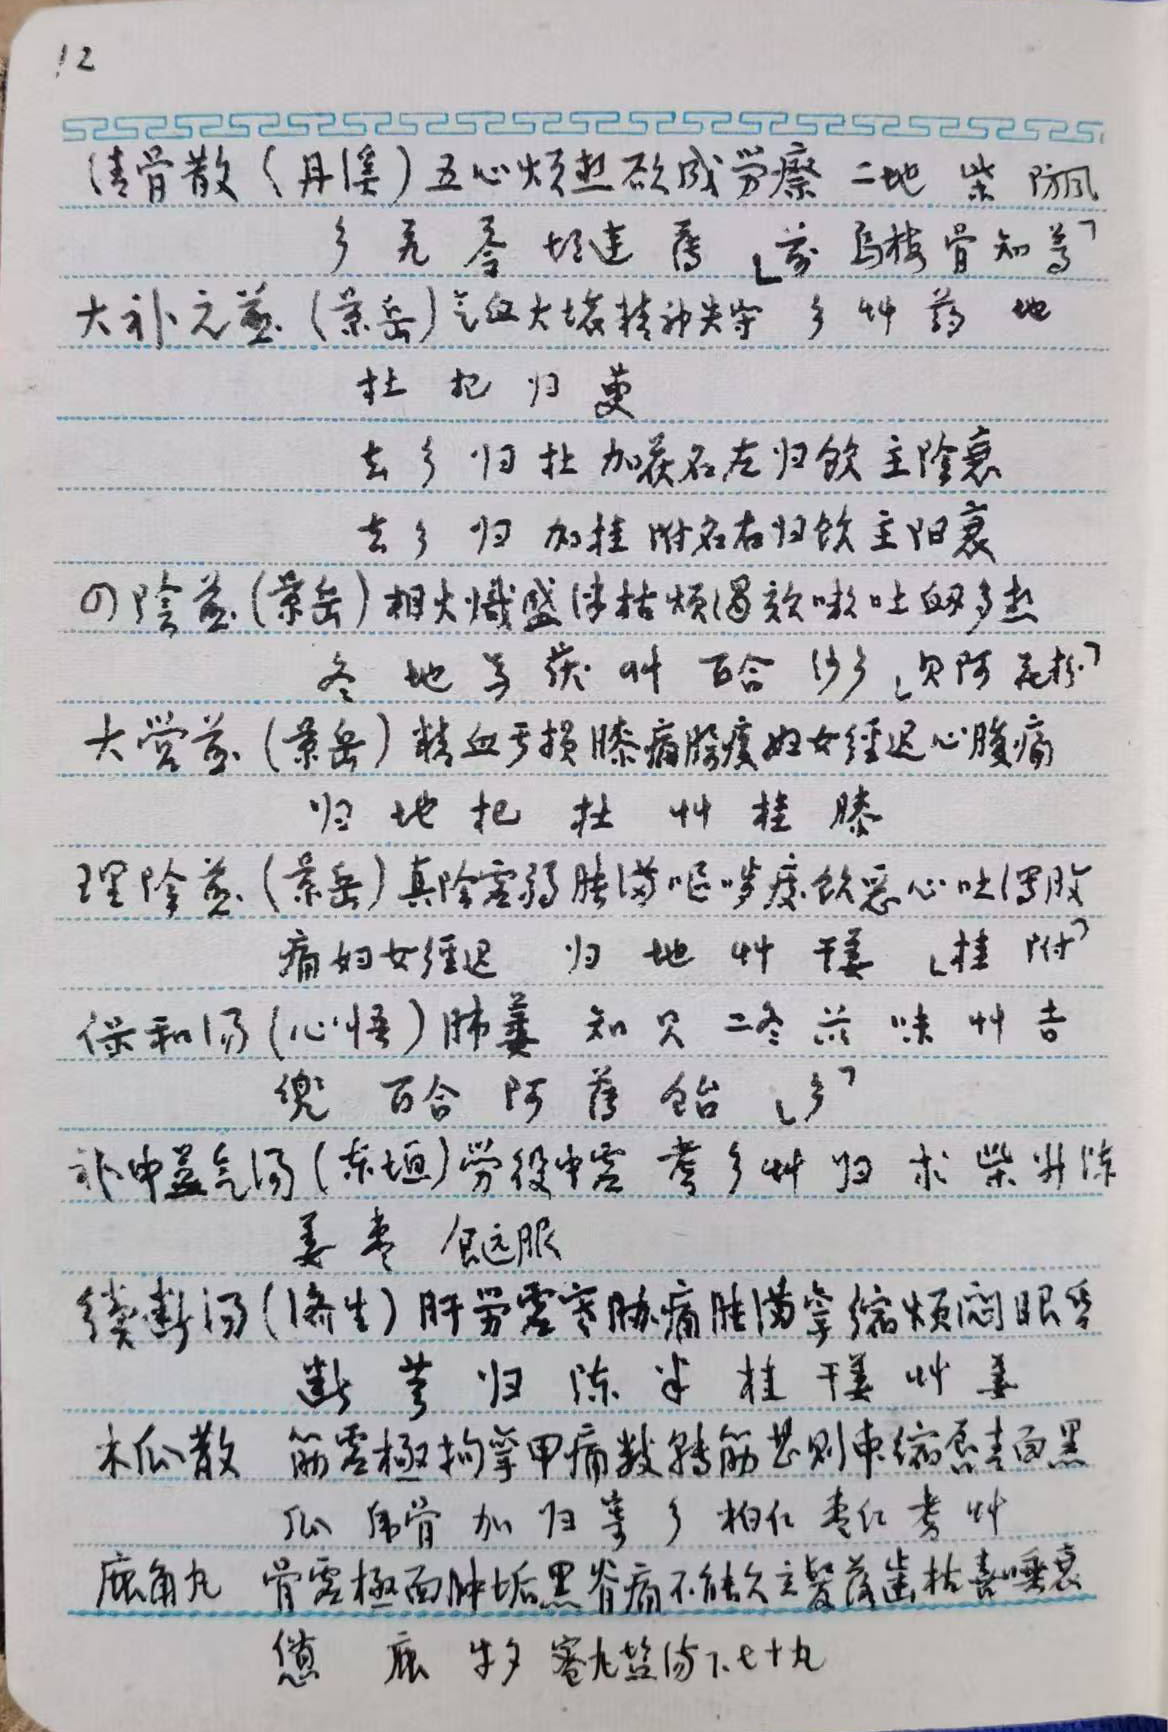 12
清骨散(丹溪)五心烦热欲成劳瘵 二地 柴 防风
参 秦 苓 胡连 薄
大补元煎(景岳)气血大坏精神失守 参 艸 药 地
杜 杞 归 萸
去参 归 杜 加茯名左归饮主陰衰
去参 归 加桂附名右归饮主阳衰
四陰煎(景岳)相火熾盛津枯烦渴咳嗽吐衄多热
冬 地 芍 茯 艸 百合 沙参「贝阿花粉」
大营煎(景岳)精血亏损膝痛腰痠妇女经迟心腹痛
归 地 杞 杜 艸 桂 膝
理陰煎(景岳)真陰虚弱胀满呕哕痰饮恶心吐泻腹
痛妇女经迟 归 地 艸 干姜「桂 附」
保和汤(心悟)肺萎 知 贝 二冬 苡 味 艸 吉
兜 百合 阿 薄 饴「参」
补中益气汤(东垣)劳役中虚 耆参艸 归 术 柴升陈
姜 枣 食远服
续断汤(济生)肝劳虚寒胁痛胀满挛缩烦闷眼昏
断 芎 归 陈 半 桂 干姜 艸 姜
木瓜散 筋虚極拘挛甲痛数轉筋甚则束缩唇青面黑
瓜 虎骨 加 归 寄 参 柏仁 枣仁 耆 艸
鹿角丸 骨虚極面肿垢黑脊痛不能久立髮落齿枯喜唾衰
憊 鹿 牛夕 蜜丸盐汤下七十丸